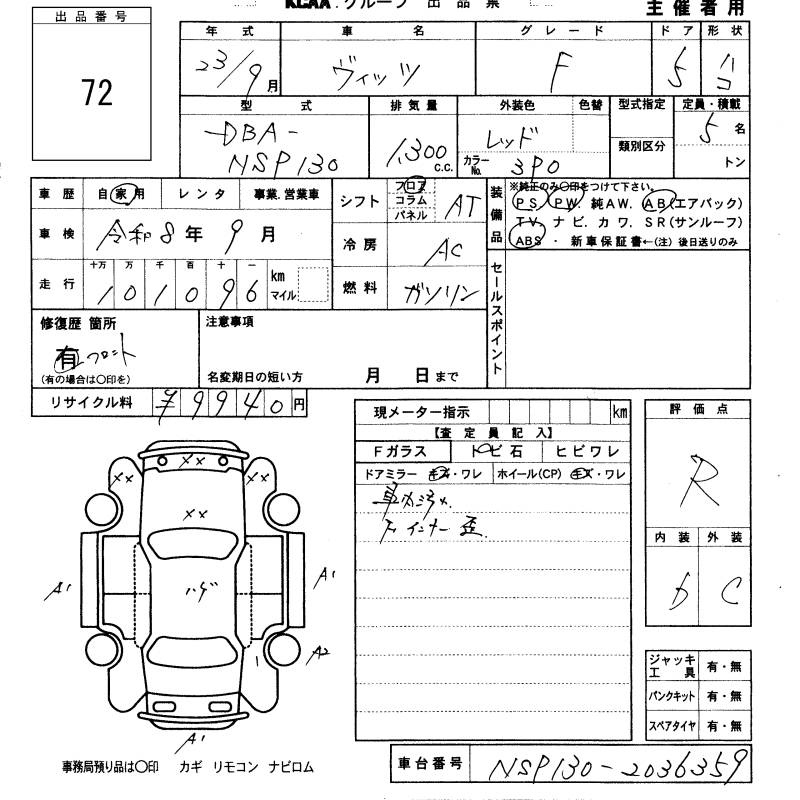 KCAA.グループ 出品票
主催者用
出品番号
72
年式 車名 グレード ドア 形状
23/9月 ヴィッツ F 5 ハコ
型式 排気量 外装色 色替 型式指定 定員・積載
DBA-
NSP130
1,300 c.c.
レッド
カラーNo. 3P0
類別区分
5名
トン
車歴 自家用 レンタ 事業.営業車
シフト フロア コラム パネル AT
装備品
※純正のみ○印をつけて下さい。
PS, PW, 純AW. AB(エアバック)
TV. ナビ. カワ. SR(サンルーフ)
ABS ・ 新車保証書←(注) 後日送りのみ
車検 令和8年9月
冷房 AC
走行 十万 万 千 百 十 一
101096 km マイル
燃料 ガソリン
セールスポイント
修復歴 箇所
有 フロント
(有の場合は○印を)
注意事項
名変期日の短い方 月 日まで
リサイクル料 ¥9940円
現メーター指示 km
【査定員記入】
Fガラス トビ石 ヒビワレ
ドアミラー キズ・ワレ ホイール(CP) キズ・ワレ
インナー 歪
評価点
R
内装 外装
D C
××
×× ××
××
ハゲ
A1 A1
A2
A1
ジャッキ工具 有・無
パンクキット 有・無
スペアタイヤ 有・無
事務局預り品は○印 カギ リモコン ナビロム
車台番号 NSP130-2036359